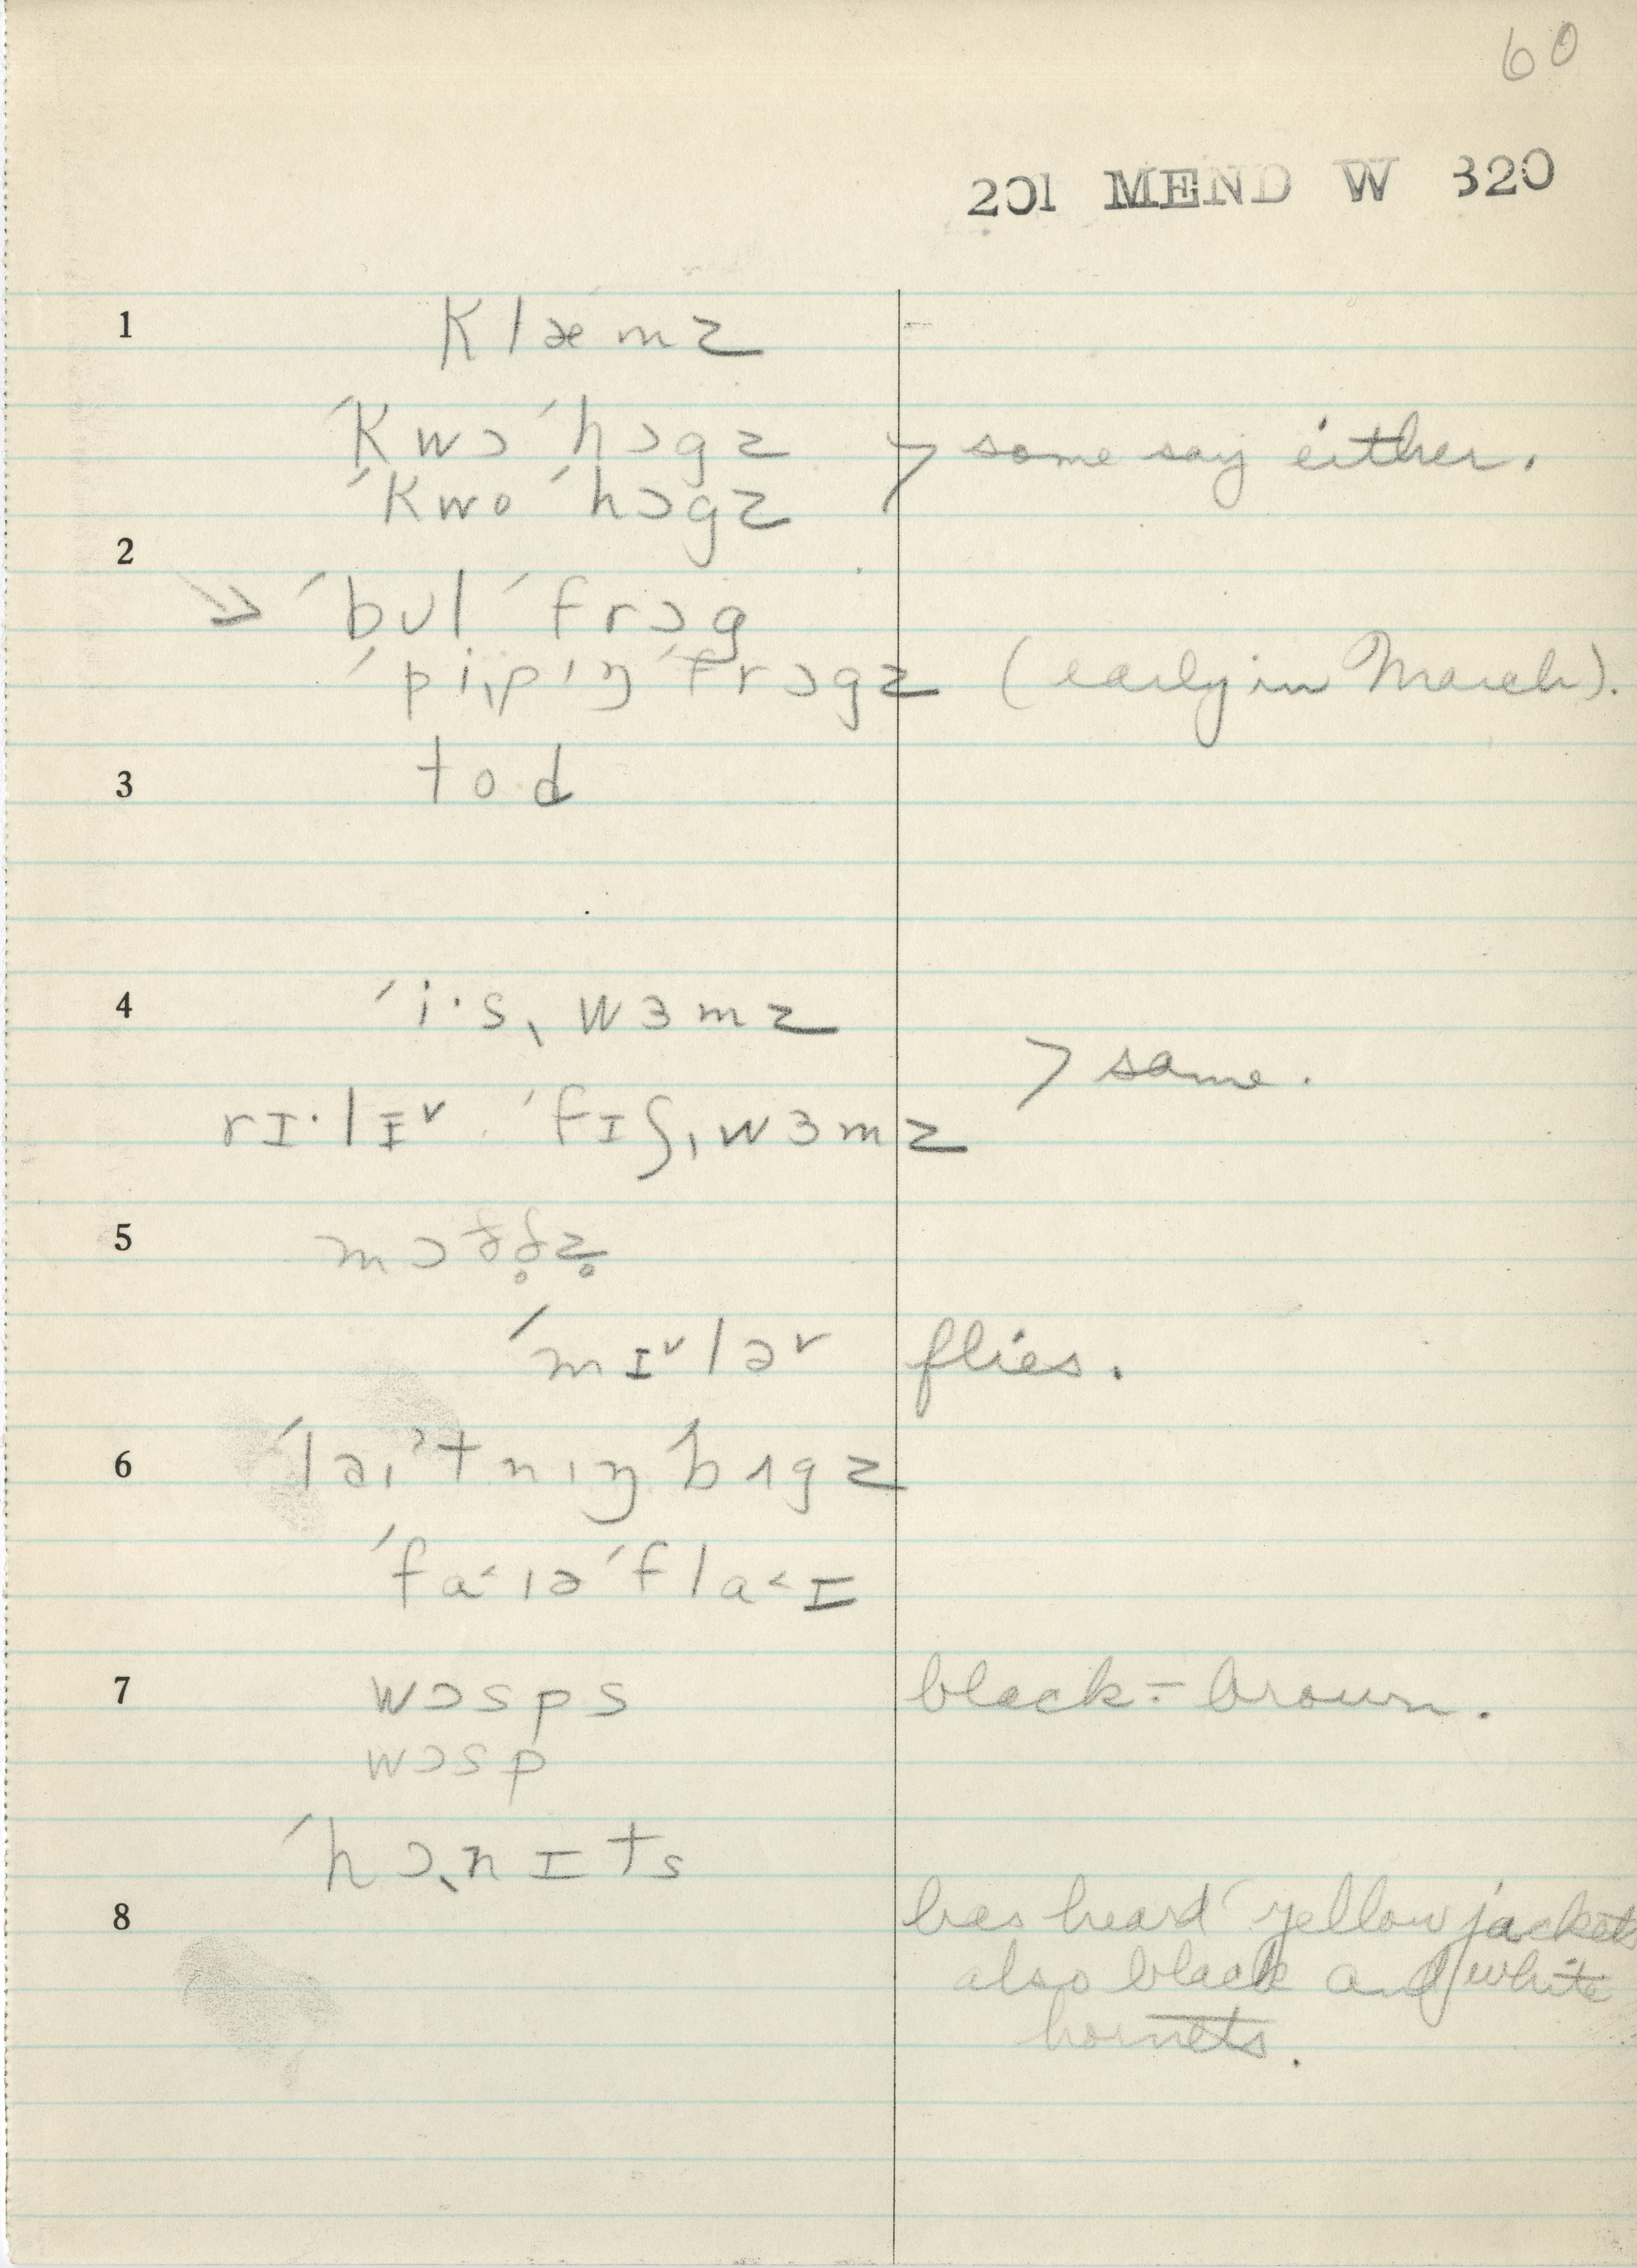 60
201 MEND W 320
1 klæmz
ˈkwɔ ˈhɔgz > some say either.
ˈkwo ˈhɔgz
2
→ ˈbʊl ˈfrɔg
ˈpi,pıŋ ˈfrɔgz (early in March).
3 to.d
4 ˈi·sˌwɜmz
> same.
rɪ·lɪ˅ ˈfɪʃˌwɜmz
5 mɔðð̥z̥
ˈmɪ˅lə˅ flies.
6 ˈləıʔtnıŋ ˈbʌgz
ˈfa˂ıə ˈfla˂ɪ
7 wɔsps black = brown.
wɔsp
ˈhɔˎnɪts
8 has heard yellow jackets
also black and white
hornets.